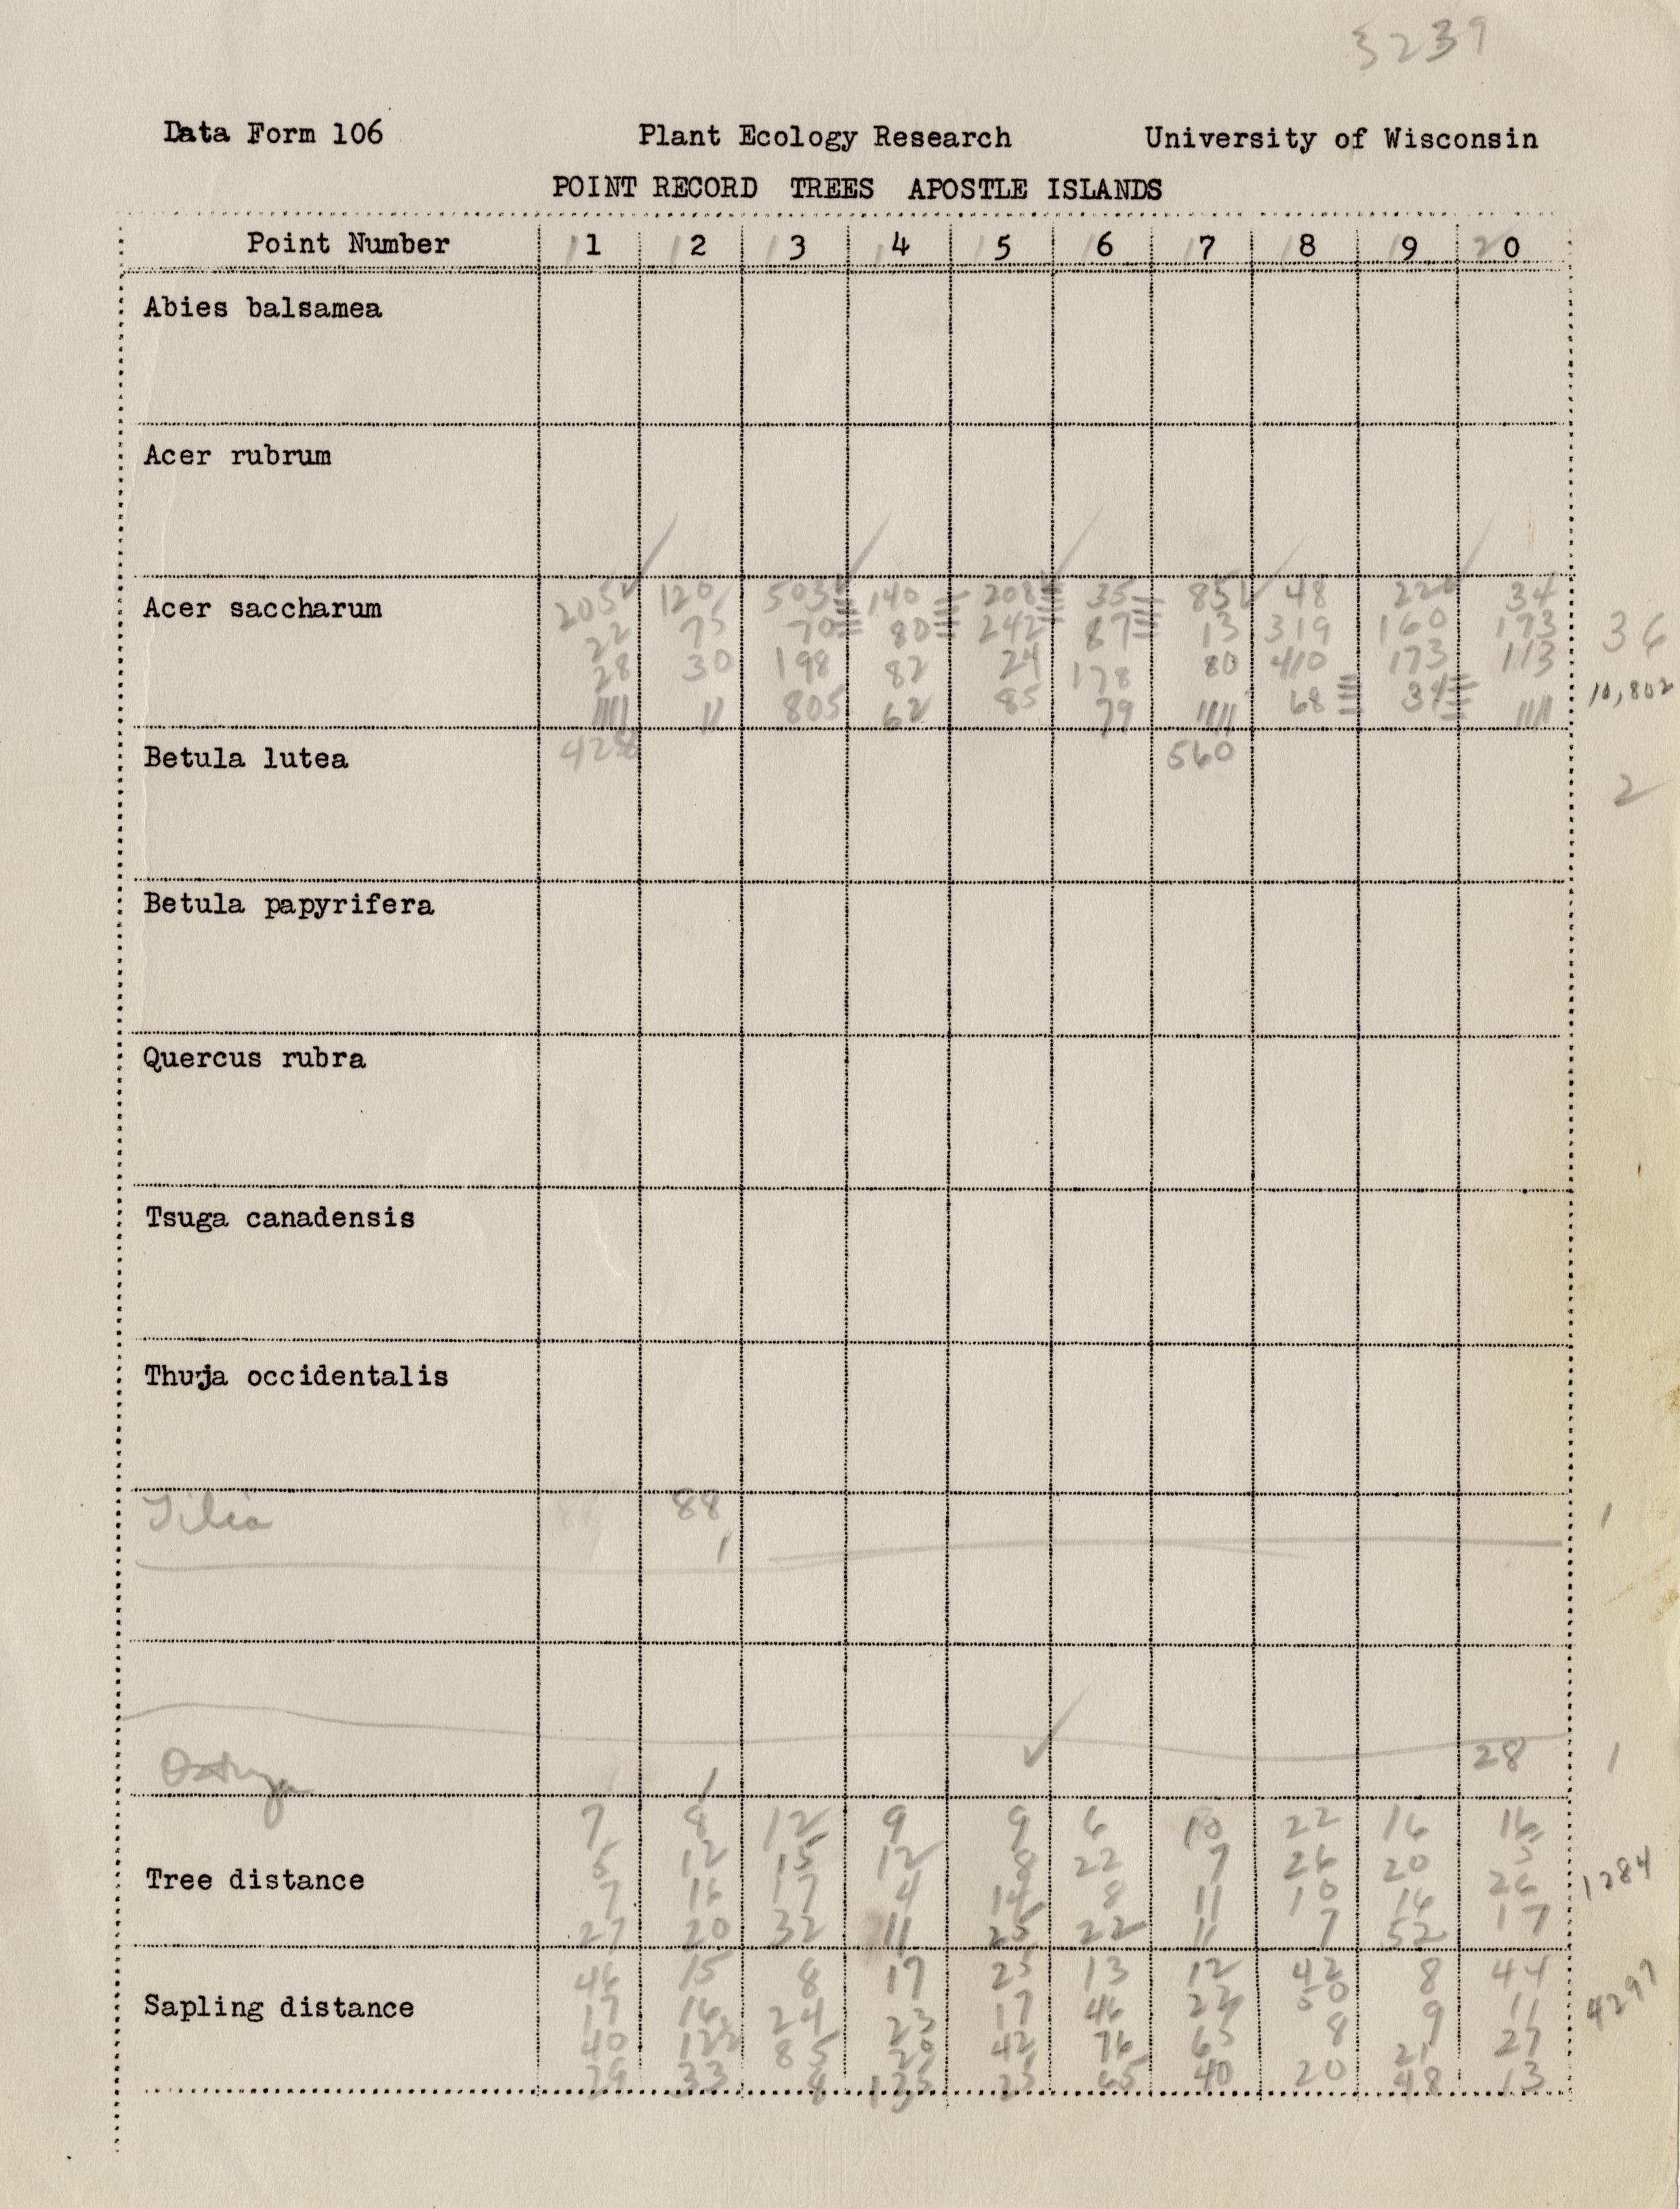 3239
Data Form 106 Plant Ecology Research University of Wisconsin
POINT RECORD TREES APOSTLE ISLANDS
Point Number 11 12 13 14 15 16 17 18 19 20
Abies balsamea
Acer rubrum
205 120 503 140 208 35 85 48 220 34
Acer saccharum
22 75 70 80 242 87 13 319 160 173 36
28 30 198 82 24 178 80 410 173 113
//// // 805 62 85 79 //// 68 34 //// 10,802
428 560
Betula lutea
2
Betula papyrifera
Quercus rubra
Tsuga canadensis
Thuja occidentalis
Tilia 88 1
1
Ostrya 28 1
7 8 12 9 9 6 10 22 16 16
5 12 15 12 8 22 7 26 20 5
Tree distance 1284
7 16 17 4 14 8 11 10 16 26
27 20 32 11 25 22 11 7 52 17
46 15 8 17 25 13 12 42 8 44
Sapling distance 4297
17 16 24 23 17 46 22 50 9 11
40 122 85 20 42 76 65 8 21 27
79 33 8 135 25 65 40 20 48 13